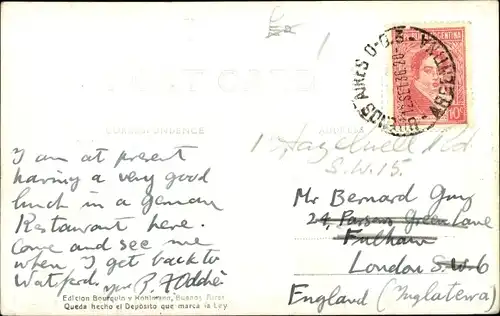 REPUBLICA ARGENTINA
10¢
BUENOS AIRES
ARGENTINA
12 SET 36 - 20
POST CARD
CORRESPONDENCE
ADDRESS
1 Hazlewell Rd.
S.W.15.
I am at present
having a very good
lunch in a German
Restaurant here.
Come and see me
when I get back to
Watford.
Mr Bernard Guy
24, Parsons Green Lane
Fulham
London S.W.6
England (Inglaterra)
Edicion Bourquin y Kohlmann, Buenos Aires
Queda hecho el Depósito que marca la Ley